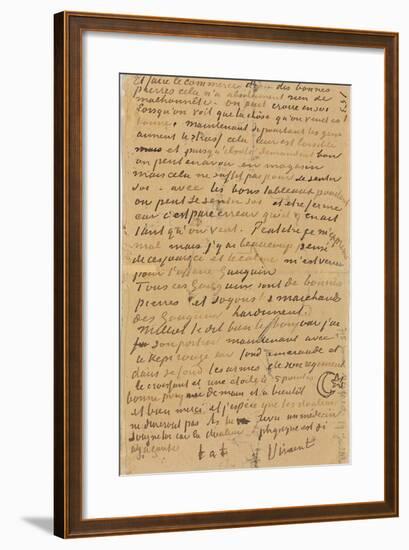 et faire le commerce des bonnes
pierres cela n'a absolument rien de
malhonnête. on peut croire en soi
lorsqu'on voit que la chose qu'on vend est
bonne, maintenant pourtant les gens
aiment le strass cela leur est loisible
mais et puisqu'ils le demandent bon
on peut en avoir en magasin
mais cela ne suffit pas pour se sentir
soi - avec les bons tableaux pourtant
on peut se sentir soi et être ferme
car c'est pure erreur qu'il y en ait
tant qu'on veut. Peut etre je m'exprime
mal mais j'y ai beaucoup pensé
de ces jours ci et le calme m'est venu
pour l'affaire Gauguin
Tous ces Gauguin sont de bonnes
pierres et soyons marchands
des Gauguin hardiment.
Milliet te dit bien le bonjour j'ai
son portrait maintenant avec
le kepi rouge sur fond emeraude et
dans ce fond les armes de son regiment
le croissant et une étoile à 5 pointes
bonne poignée de main et à bientôt
et bien merci et j'espère que les douleurs
ne dureront pas As tu revu un médecin
soigne toi car la douleur physique est si
agaçante t. à t. Vincent